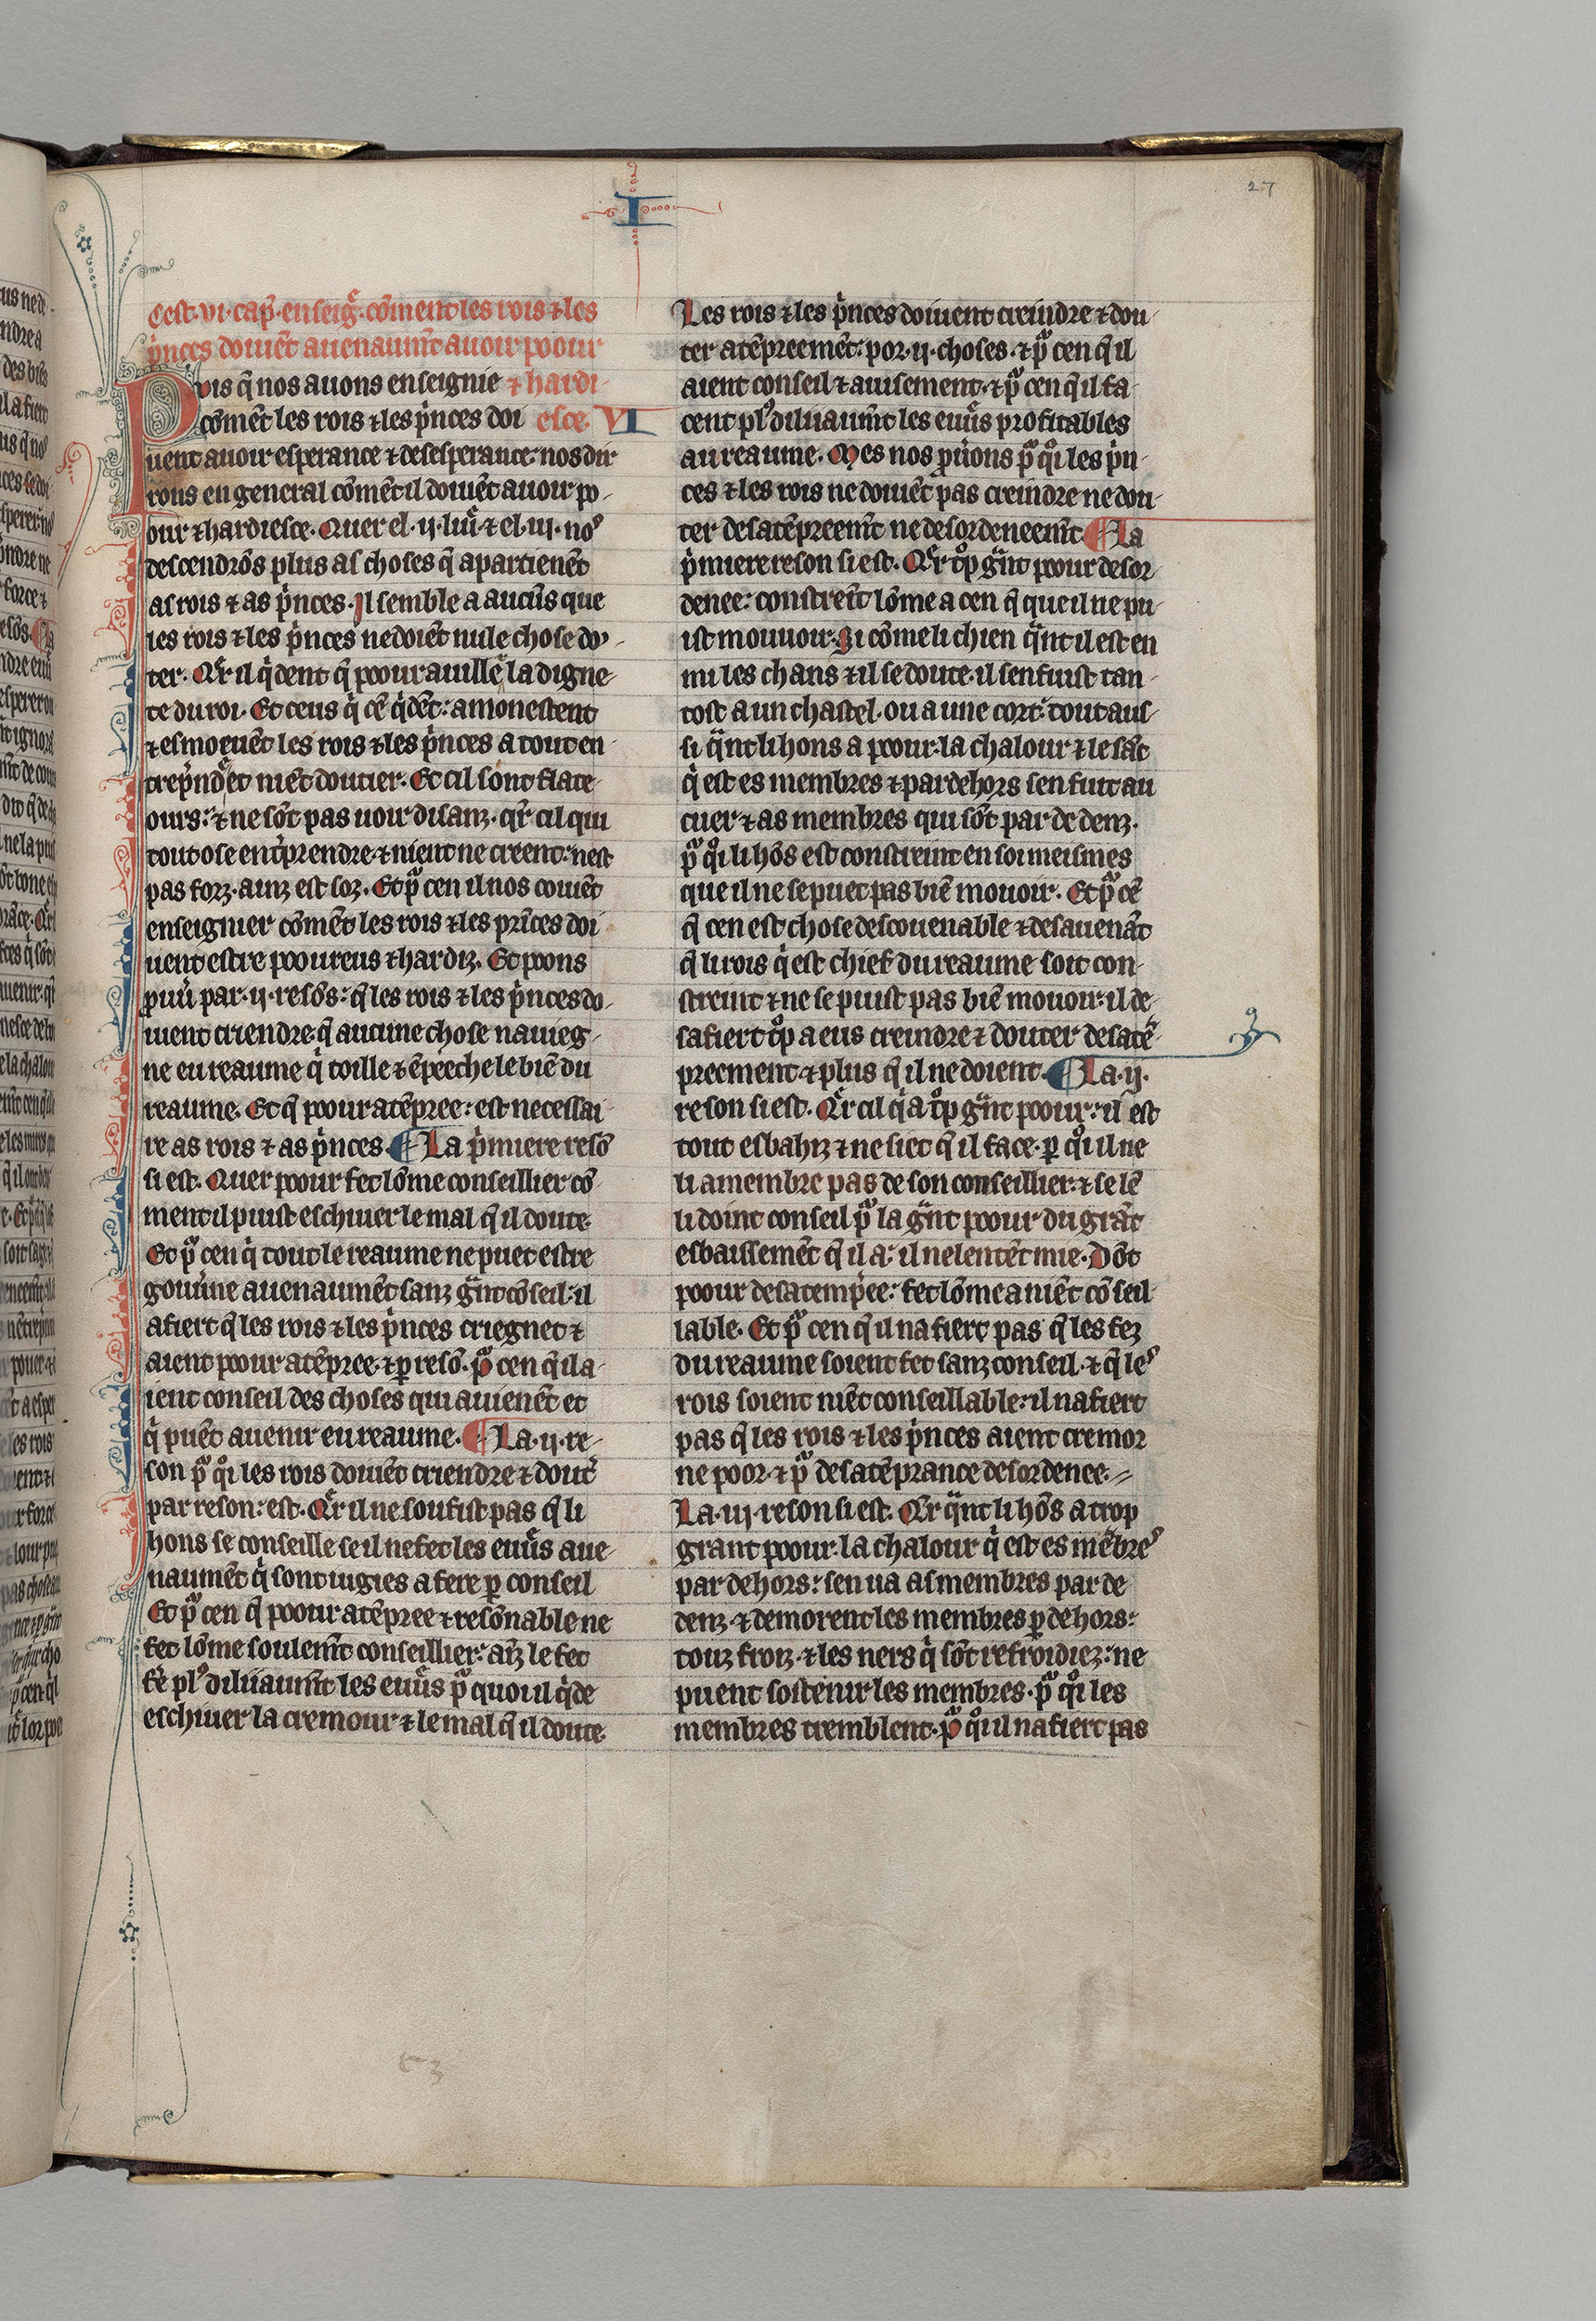 27
I
Cest .vi. cap̄. enseig̃. cōment les rois ⁊ les
p̾nces doiuēt auenaum̄t auoir poour
Puis q̄ nos auons enseignie ⁊ hardi-
cōmēt les rois ⁊ les p̾nces doi esce. VI
uent auoir esperance ⁊ desesperance: nos dir
rons en general cōmēt il doiuēt auoir po-
our ⁊ hardiesce. Quer el .ij. liũ. ⁊ el .iij. noꝰ
descendrōs plus as choses q̄ apartienēt
as rois ⁊ as p̾nces. Il semble a aucūs que
les rois ⁊ les p̾nces ne doiēt nule chose do-
ter. Qr̄ il q̾dent q̄ poour auille la digne-
te du roi. Et ceus q̾ cē q̾dēt: amonestent
⁊ esmoeuēt les rois ⁊ les p̾nces a tout en-
trep̾ndʳ et niēt doutier. Et cil sont flate-
ours: ⁊ ne sōt pas uoir disanz. qr̄ cil qui
tout ose ent̾prendre ⁊ nient ne creent: nest
pas forz. ainz est foz. Et pͣ cen il nos couiēt
enseignier cōmēt les rois ⁊ les prīces doi-
uent estre pooureus ⁊ hardiz. Et poons
ꝓuũ par .ij. resōs: q̄ les rois ⁊ les p̾nces do-
iuent criendre. q̄ aucune chose nauieg-
ne eu reaume q̾ toille ⁊ ēpeeche le biē du
reaume. Et q̄ poour atēpree: est necessai-
re as rois ⁊ as p̾nces. ¶ La p̾miere resō
si est. Quer poour fet lōme conseillier cō-
ment il puist eschiuer le mal q̄ il doute.
Et pͣ cen q̄ tout le reaume ne puet estre
gouũne auenaumēt sanz gͣnt cōseil: il
afiert q̄ les rois ⁊ les p̾nces criegnet ⁊
aient poour atēpree. ⁊ ꝑ resō. pͣ cen q̄ il a-
ient conseil des choses qui auienēt et
q̾ puēt auenir eu reaume. ¶ La .ij. re-
son pͣ qͦi les rois doiuēt criendre ⁊ dout̾
par reson: est. Qr̄ il ne soufist pas q̄ li
hons se conseille se il ne fet les euũs aue-
naumēt q̾ sont iugies a fere ꝑ conseil
Et pͣ cen q̄ poour atēpree ⁊ resōnable ne
fet lōme soulem̄t conseillier: aīz le fet
fē̾ plꝰ diliiaum̄t les euũs pͣ quoi il q̾de
eschiuer la cremour ⁊ le mal q̄ il doute.
Les rois ⁊ les p̾nces doiuent creindre ⁊ dou-
ter atēpreemēt: por .ij. choses. ⁊ pͣ cen q̄ il
aient conseil ⁊ auisement. ⁊ pͣ cen q̄ il fa-
cent plꝰ diliiaum̄t les euũs profitables
au reaume. Mes nos ꝓuōns pͣ qͦi les p̾n-
ces ⁊ les rois ne doiuēt pas creindre ne dou-
ter desatēpreem̄t ne desordeneem̄t ¶ La
p̾miere reson si est. Qr̄ tͦp gͣnt poour desor-
denee: constreīt lōme a cen q̄ que il ne pu-
ist mouuoir. Si cōme li chien qͣnt il est en
mi les chans ⁊ il se doute. il senfuist tan-
tost a un chastel. ou a une cort. tout aus-
si qͣnt li hons a poour: la chalour ⁊ le sāc
q̾ est es membres ⁊ par dehors sen fuit au
cuer ⁊ as membres qui sōt par de denz.
pͣ qͦi li hōs est constreint en soi meismes
que il ne se puet pas biē mouoir. Et pͣ cē
q̄ cen est chose descouenable ⁊ desauenāt
q̄ li rois q̾ est chief du reaume soit con-
streint ⁊ ne se puist pas biē mouoir: il de-
safiert tͦp a eus creindre ⁊ douter desatē-
preement ⁊ plus q̄ il ne doient. ¶ La .ij.
reson si est. Qr̄ cil q̾ a tͦp gͣnt poour: il est
tout esbahiz ⁊ ne siet q̄ il face. ꝑ qͦi il ne
li amembre pas de son conseillier. ⁊ se lē
li doint conseil pͣ la gͣnt poour du grāt
esbaissemēt q̄ il a: il ne lentēt mie. Dōt
poour desatemp̾ee: fet lōme a niēt cōseil-
lable. Et pͣ cen q̄ il nafiert pas q̄ les fez
du reaume soient fet sanz conseil. ⁊ q̄ leꝰ
rois soient niēt conseillable: il nafiert
pas q̄ les rois ⁊ les p̾nces aient cremor
ne poor. ⁊ pͣ desatēprance desordenee.
La .iij. reson si est. Qr̄ qͣnt li hōs a trop
grant poour. la chalour q̾ est es mēbreꝰ
par dehors: sen ua as membres par de
denz. ⁊ demorent les membres ꝑ dehors:
touz froiz. ⁊ les ners q̾ sōt refroidiez: ne
puent sostenir les membres. pͣ qͦi les
membres tremblent. pͣ qͦi il nafiert pas